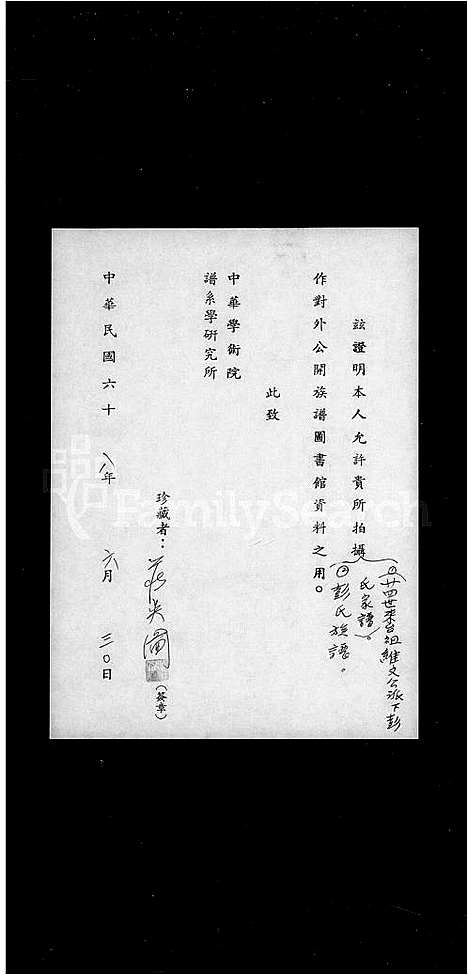 茲證明本人允許貴所拍攝
①廿四世來台祖維文公派下彭
氏家譜。
②彭氏族譜。
作對外公開族譜圖書館資料之用。
此致
中華學術院
譜系學研究所
珍藏者：
(簽章)
中華民國六十八年六月三○日
FamilySearch